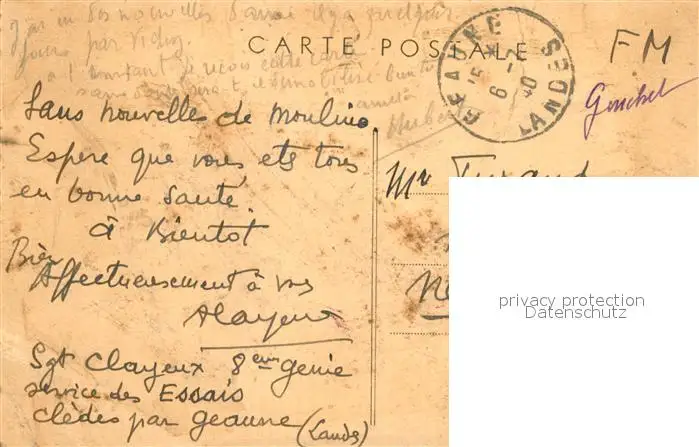 j'ai eu des nouvelles
jours par Vichy
à l'instant je reçois cette carte
CARTE POSTALE
GEAUNE
6 - 7
40
LANDES
FM
Guichet
Hubert
Sans nouvelles de moulins
Espère que vous ets tous
en bonne santé
à Bientot
Bien
Affectueusement à vous
Clayeux
Sgt Clayeux 8eme genie
service des Essais
clèdes par geaune (Landes)
Mr
privacy protection
Datenschutz